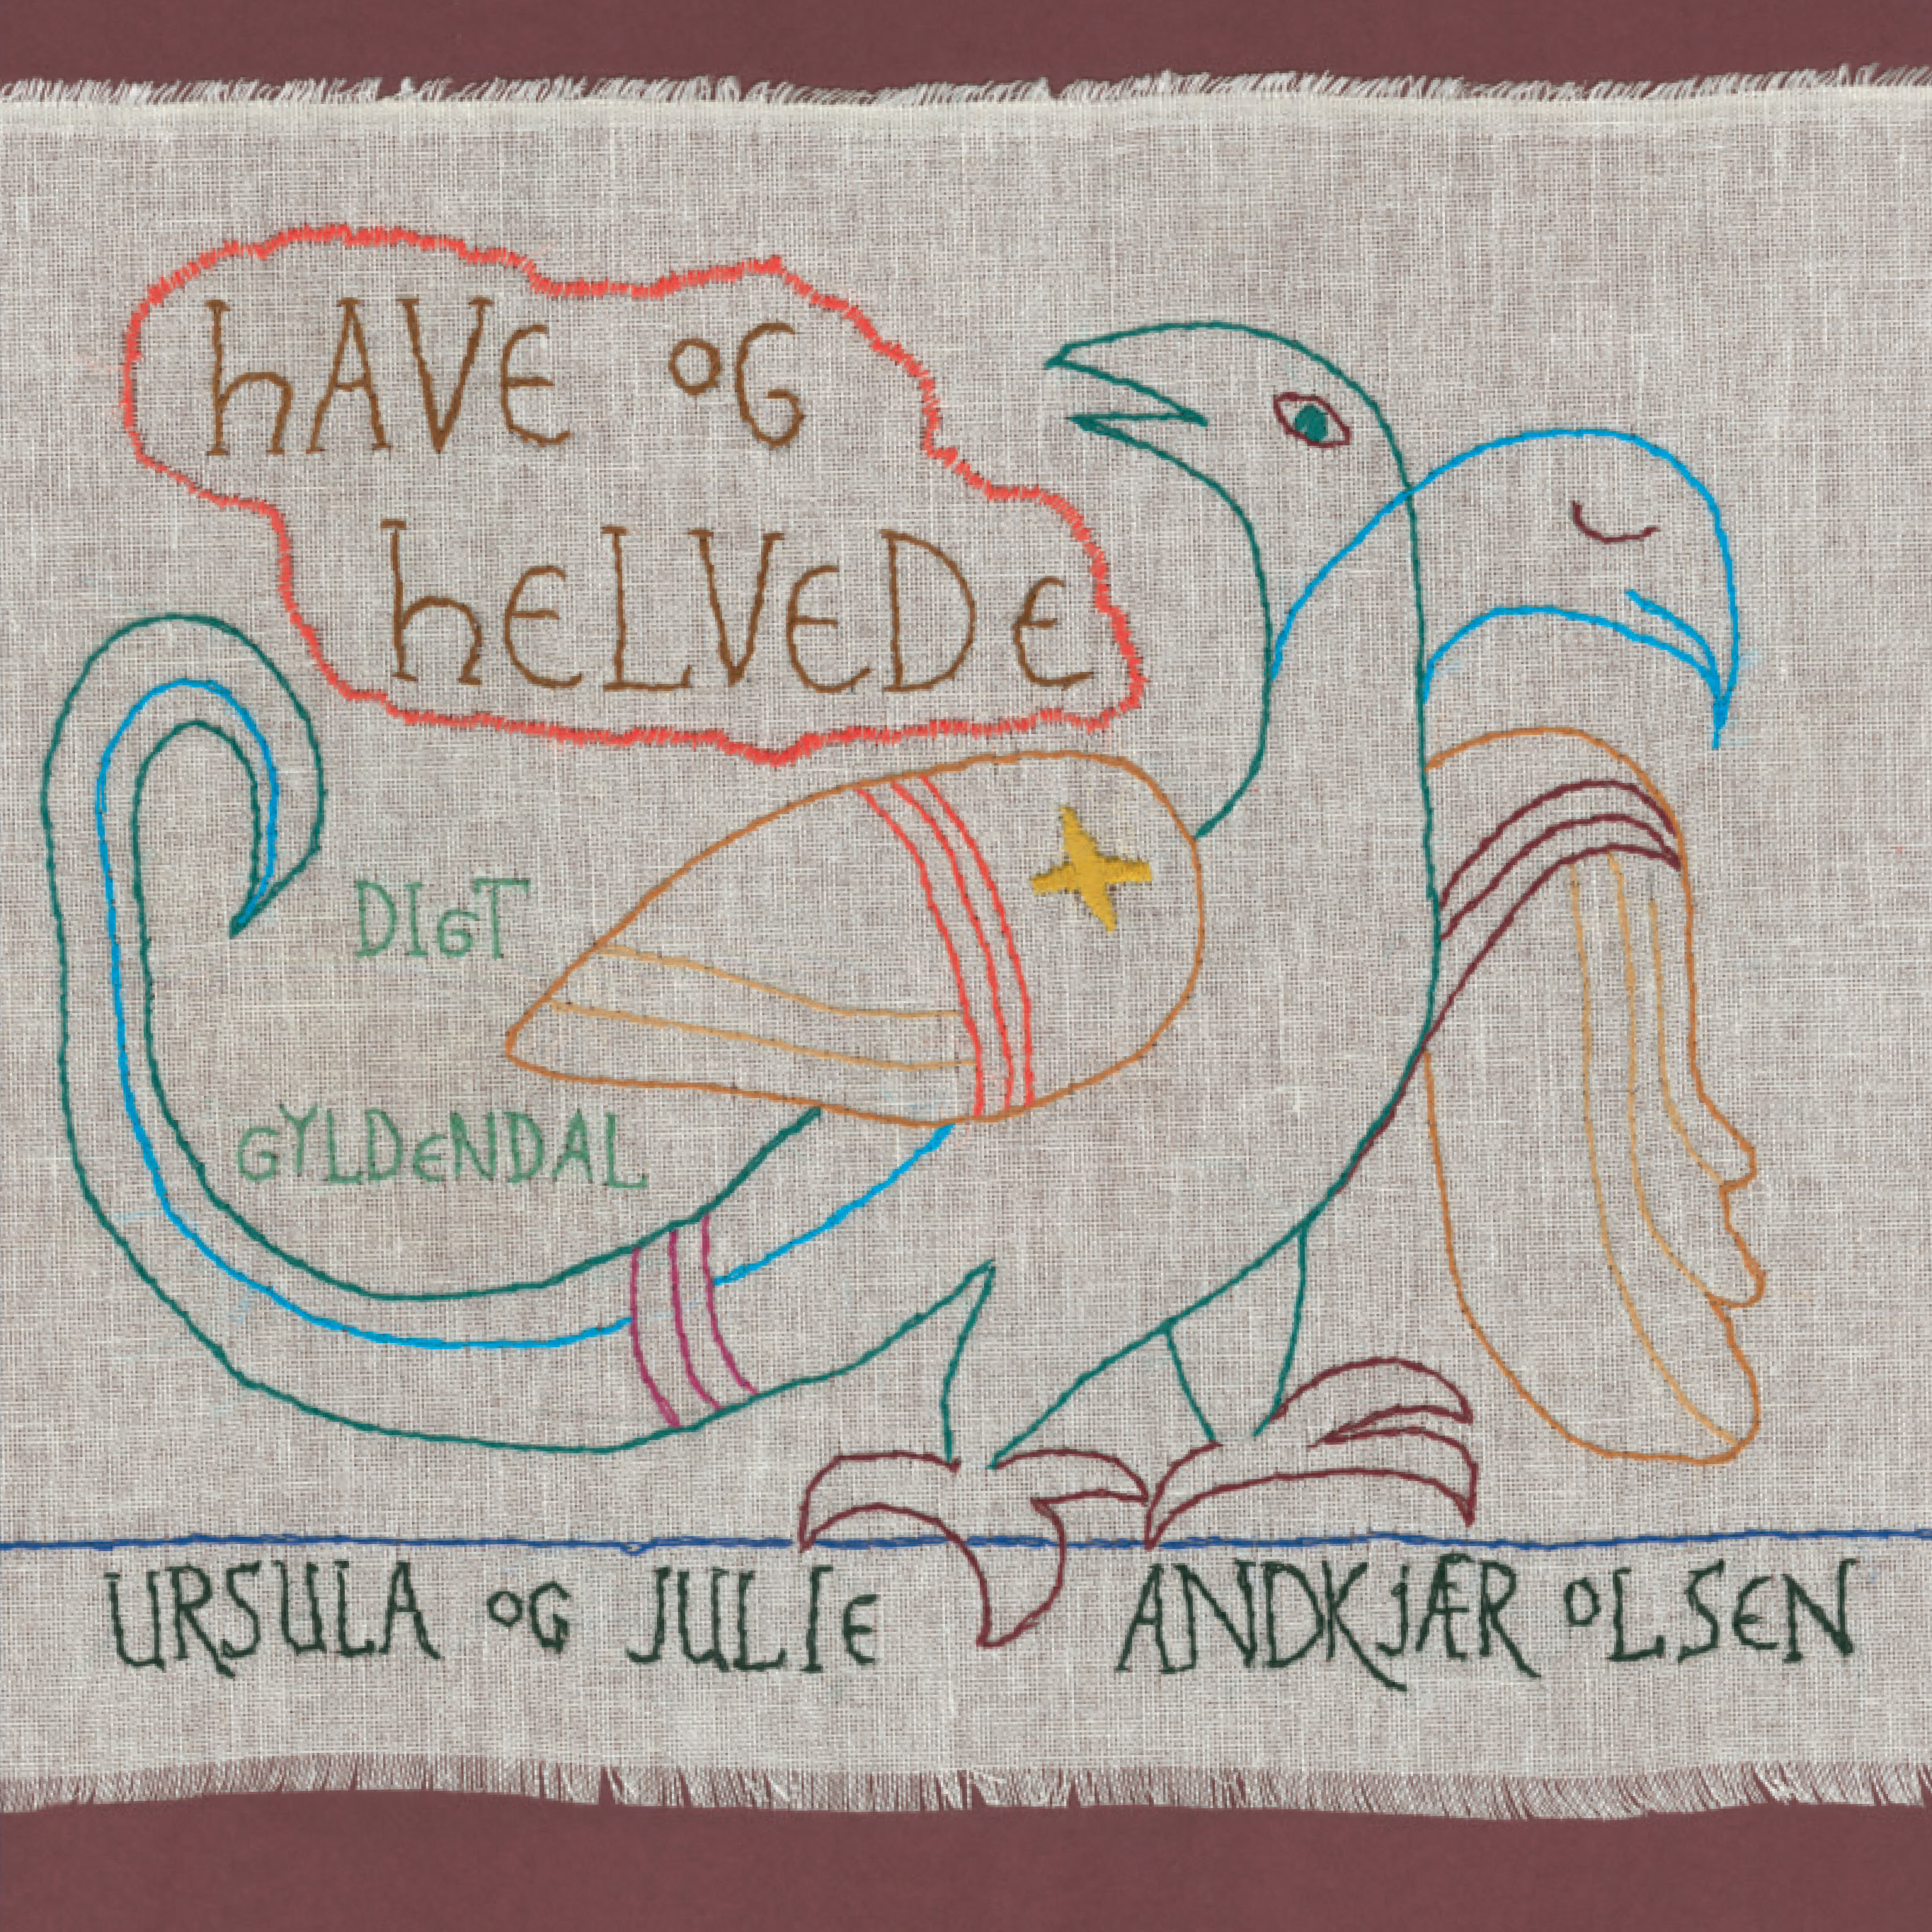 hAVE OG
hELVEDE
DIGT
GYLDENDAL
URSULA OG JULIE ANDKJÆR OLSEN